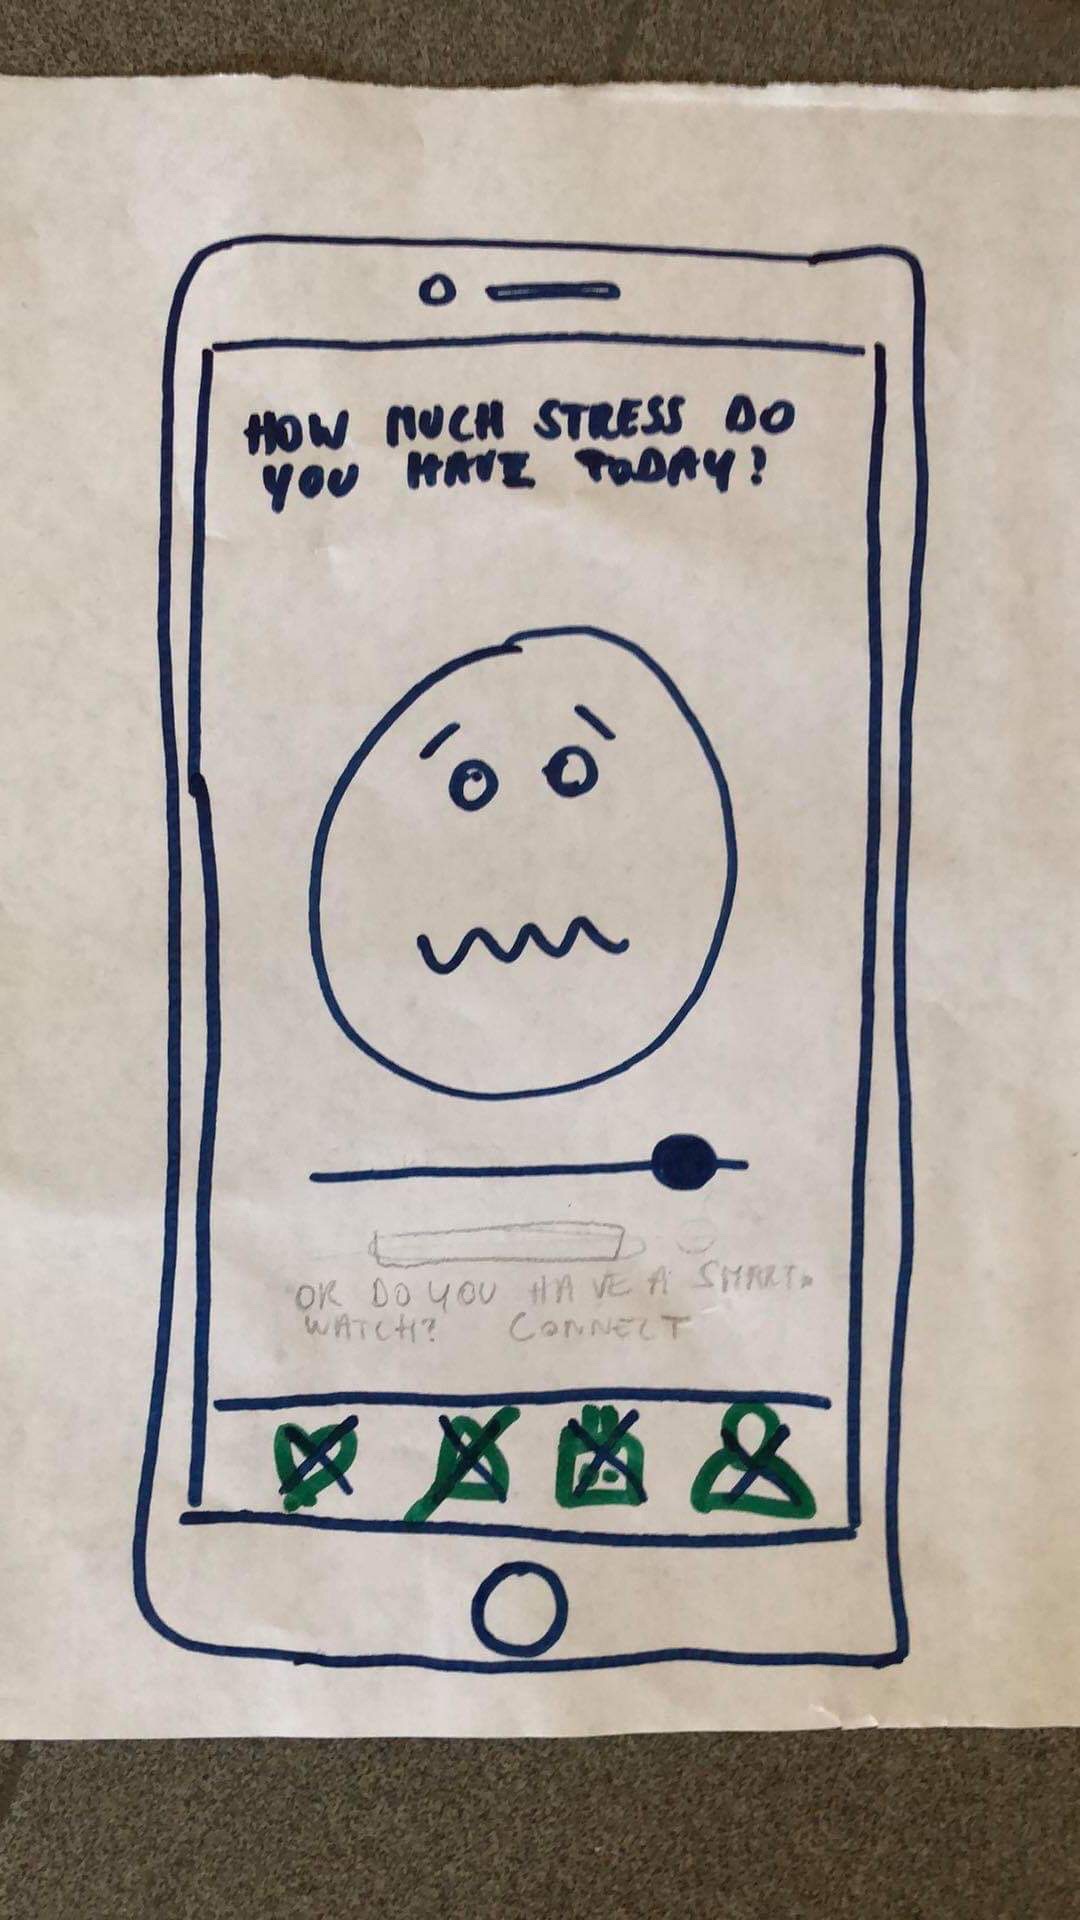 HOW MUCH STRESS DO
YOU HAVE TODAY?
OR DO YOU HAVE A SMART
WATCH? CONNECT